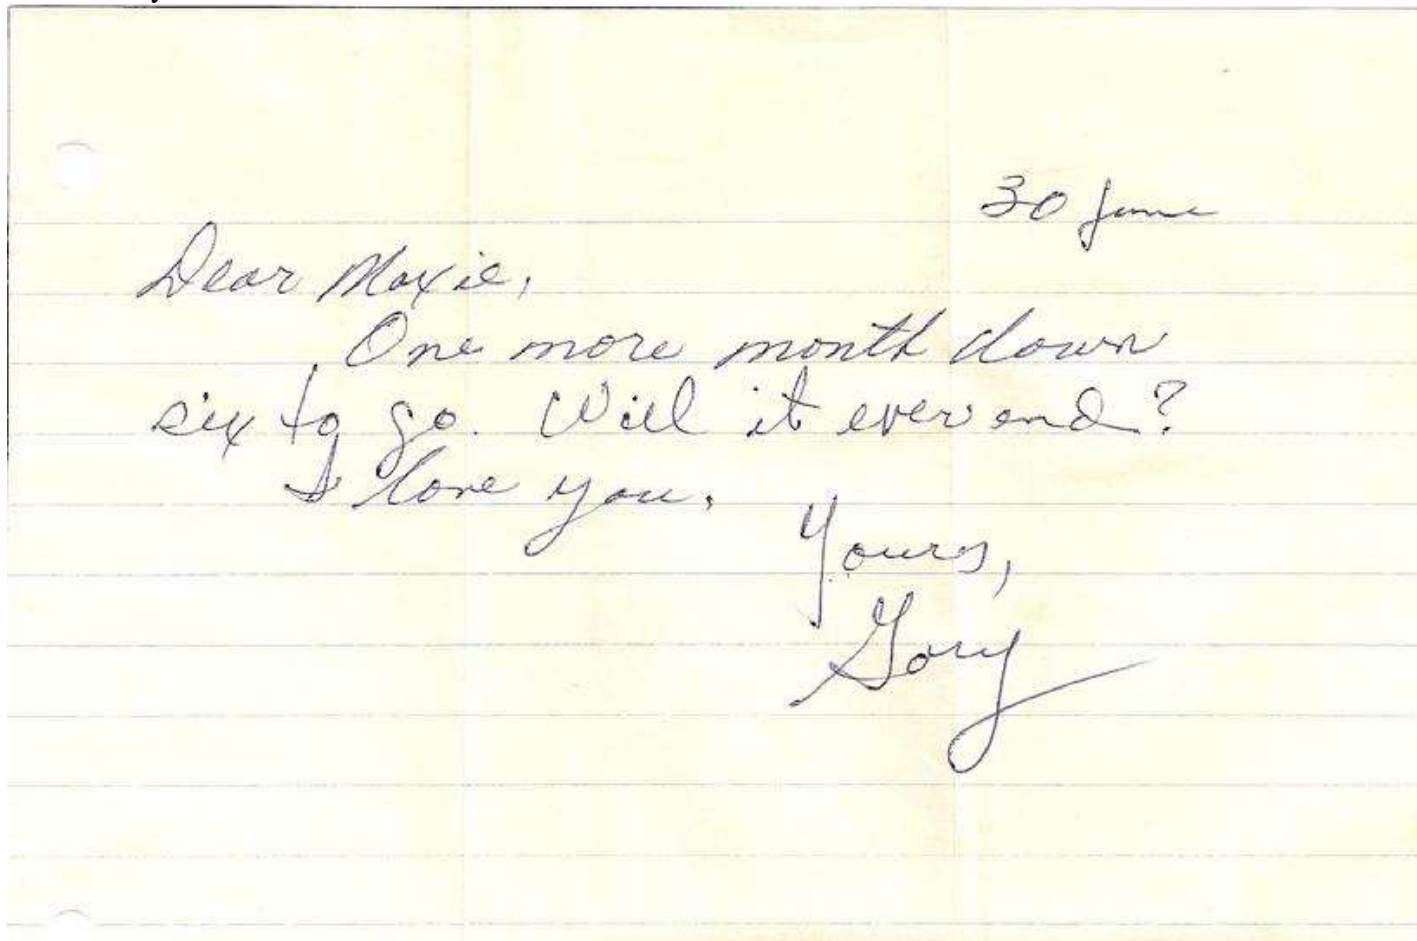 30 June
Dear Moxie,
One more month down
six to go. Will it ever end?
I love you.
Yours,
Gary